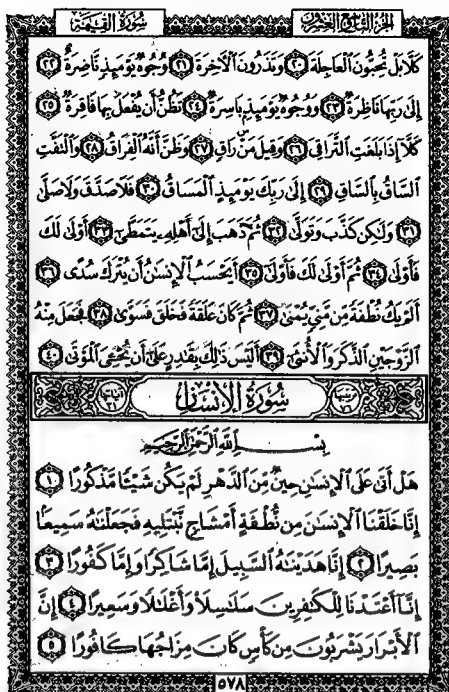 الجُزءُ التَّاسِعُ وَالعِشرُونَ سُورَةُ القِيَامَةِ
كَلَّا بَلْ تُحِبُّونَ ٱلْعَاجِلَةَ ٢٠ وَتَذَرُونَ ٱلْآخِرَةَ ٢١ وُجُوهٌ يَوْمَئِذٍ نَّاضِرَةٌ ٢٢
إِلَىٰ رَبِّهَا نَاظِرَةٌ ٢٣ وَوُجُوهٌ يَوْمَئِذٍۭ بَاسِرَةٌ ٢٤ تَظُنُّ أَن يُفْعَلَ بِهَا فَاقِرَةٌ ٢٥
كَلَّآ إِذَا بَلَغَتِ ٱلتَّرَاقِىَ ٢٦ وَقِيلَ مَنْ رَاقٍ ٢٧ وَظَنَّ أَنَّهُ ٱلْفِرَاقُ ٢٨ وَٱلْتَفَّتِ
ٱلسَّاقُ بِٱلسَّاقِ ٢٩ إِلَىٰ رَبِّكَ يَوْمَئِذٍ ٱلْمَسَاقُ ٣٠ فَلَا صَدَّقَ وَلَا صَلَّىٰ
٣١ وَلَٰكِن كَذَّبَ وَتَوَلَّىٰ ٣٢ ثُمَّ ذَهَبَ إِلَىٰٓ أَهْلِهِۦ يَتَمَطَّىٰٓ ٣٣ أَوْلَىٰ لَكَ
فَأَوْلَىٰ ٣٤ ثُمَّ أَوْلَىٰ لَكَ فَأَوْلَىٰٓ ٣٥ أَيَحْسَبُ ٱلْإِنسَٰنُ أَن يُتْرَكَ سُدًى ٣٦
أَلَمْ يَكُ نُطْفَةً مِّن مَّنِىٍّ يُمْنَىٰ ٣٧ ثُمَّ كَانَ عَلَقَةً فَخَلَقَ فَسَوَّىٰ ٣٨ فَجَعَلَ مِنْهُ
ٱلزَّوْجَيْنِ ٱلذَّكَرَ وَٱلْأُنثَىٰٓ ٣٩ أَلَيْسَ ذَٰلِكَ بِقَٰدِرٍ عَلَىٰٓ أَن يُحْۦِىَ ٱلْمَوْتَىٰ ٤٠
ترتيبها ٧٦ سُورَةُ الإِنسَان آياتها ٣١
بِسْمِ ٱللَّهِ ٱلرَّحْمَٰنِ ٱلرَّحِيمِ
هَلْ أَتَىٰ عَلَى ٱلْإِنسَٰنِ حِينٌ مِّنَ ٱلدَّهْرِ لَمْ يَكُن شَيْـًٔا مَّذْكُورًا ١
إِنَّا خَلَقْنَا ٱلْإِنسَٰنَ مِن نُّطْفَةٍ أَمْشَاجٍ نَّبْتَلِيهِ فَجَعَلْنَٰهُ سَمِيعًۢا
بَصِيرًا ٢ إِنَّا هَدَيْنَٰهُ ٱلسَّبِيلَ إِمَّا شَاكِرًا وَإِمَّا كَفُورًا ٣
إِنَّآ أَعْتَدْنَا لِلْكَٰفِرِينَ سَلَٰسِلَا۟ وَأَغْلَٰلًا وَسَعِيرًا ٤ إِنَّ
ٱلْأَبْرَارَ يَشْرَبُونَ مِن كَأْسٍ كَانَ مِزَاجُهَا كَافُورًا ٥
٥٧٨